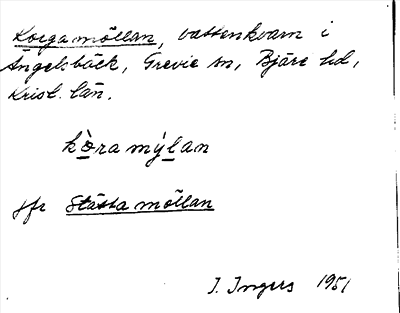 Korgamöllan, vattenkvarn i
Ängelsbäck, Grevie sn, Bjäre hd,
Krist. län.
kòra mýlan
jfr Stättamöllan
I. Ingers 1951